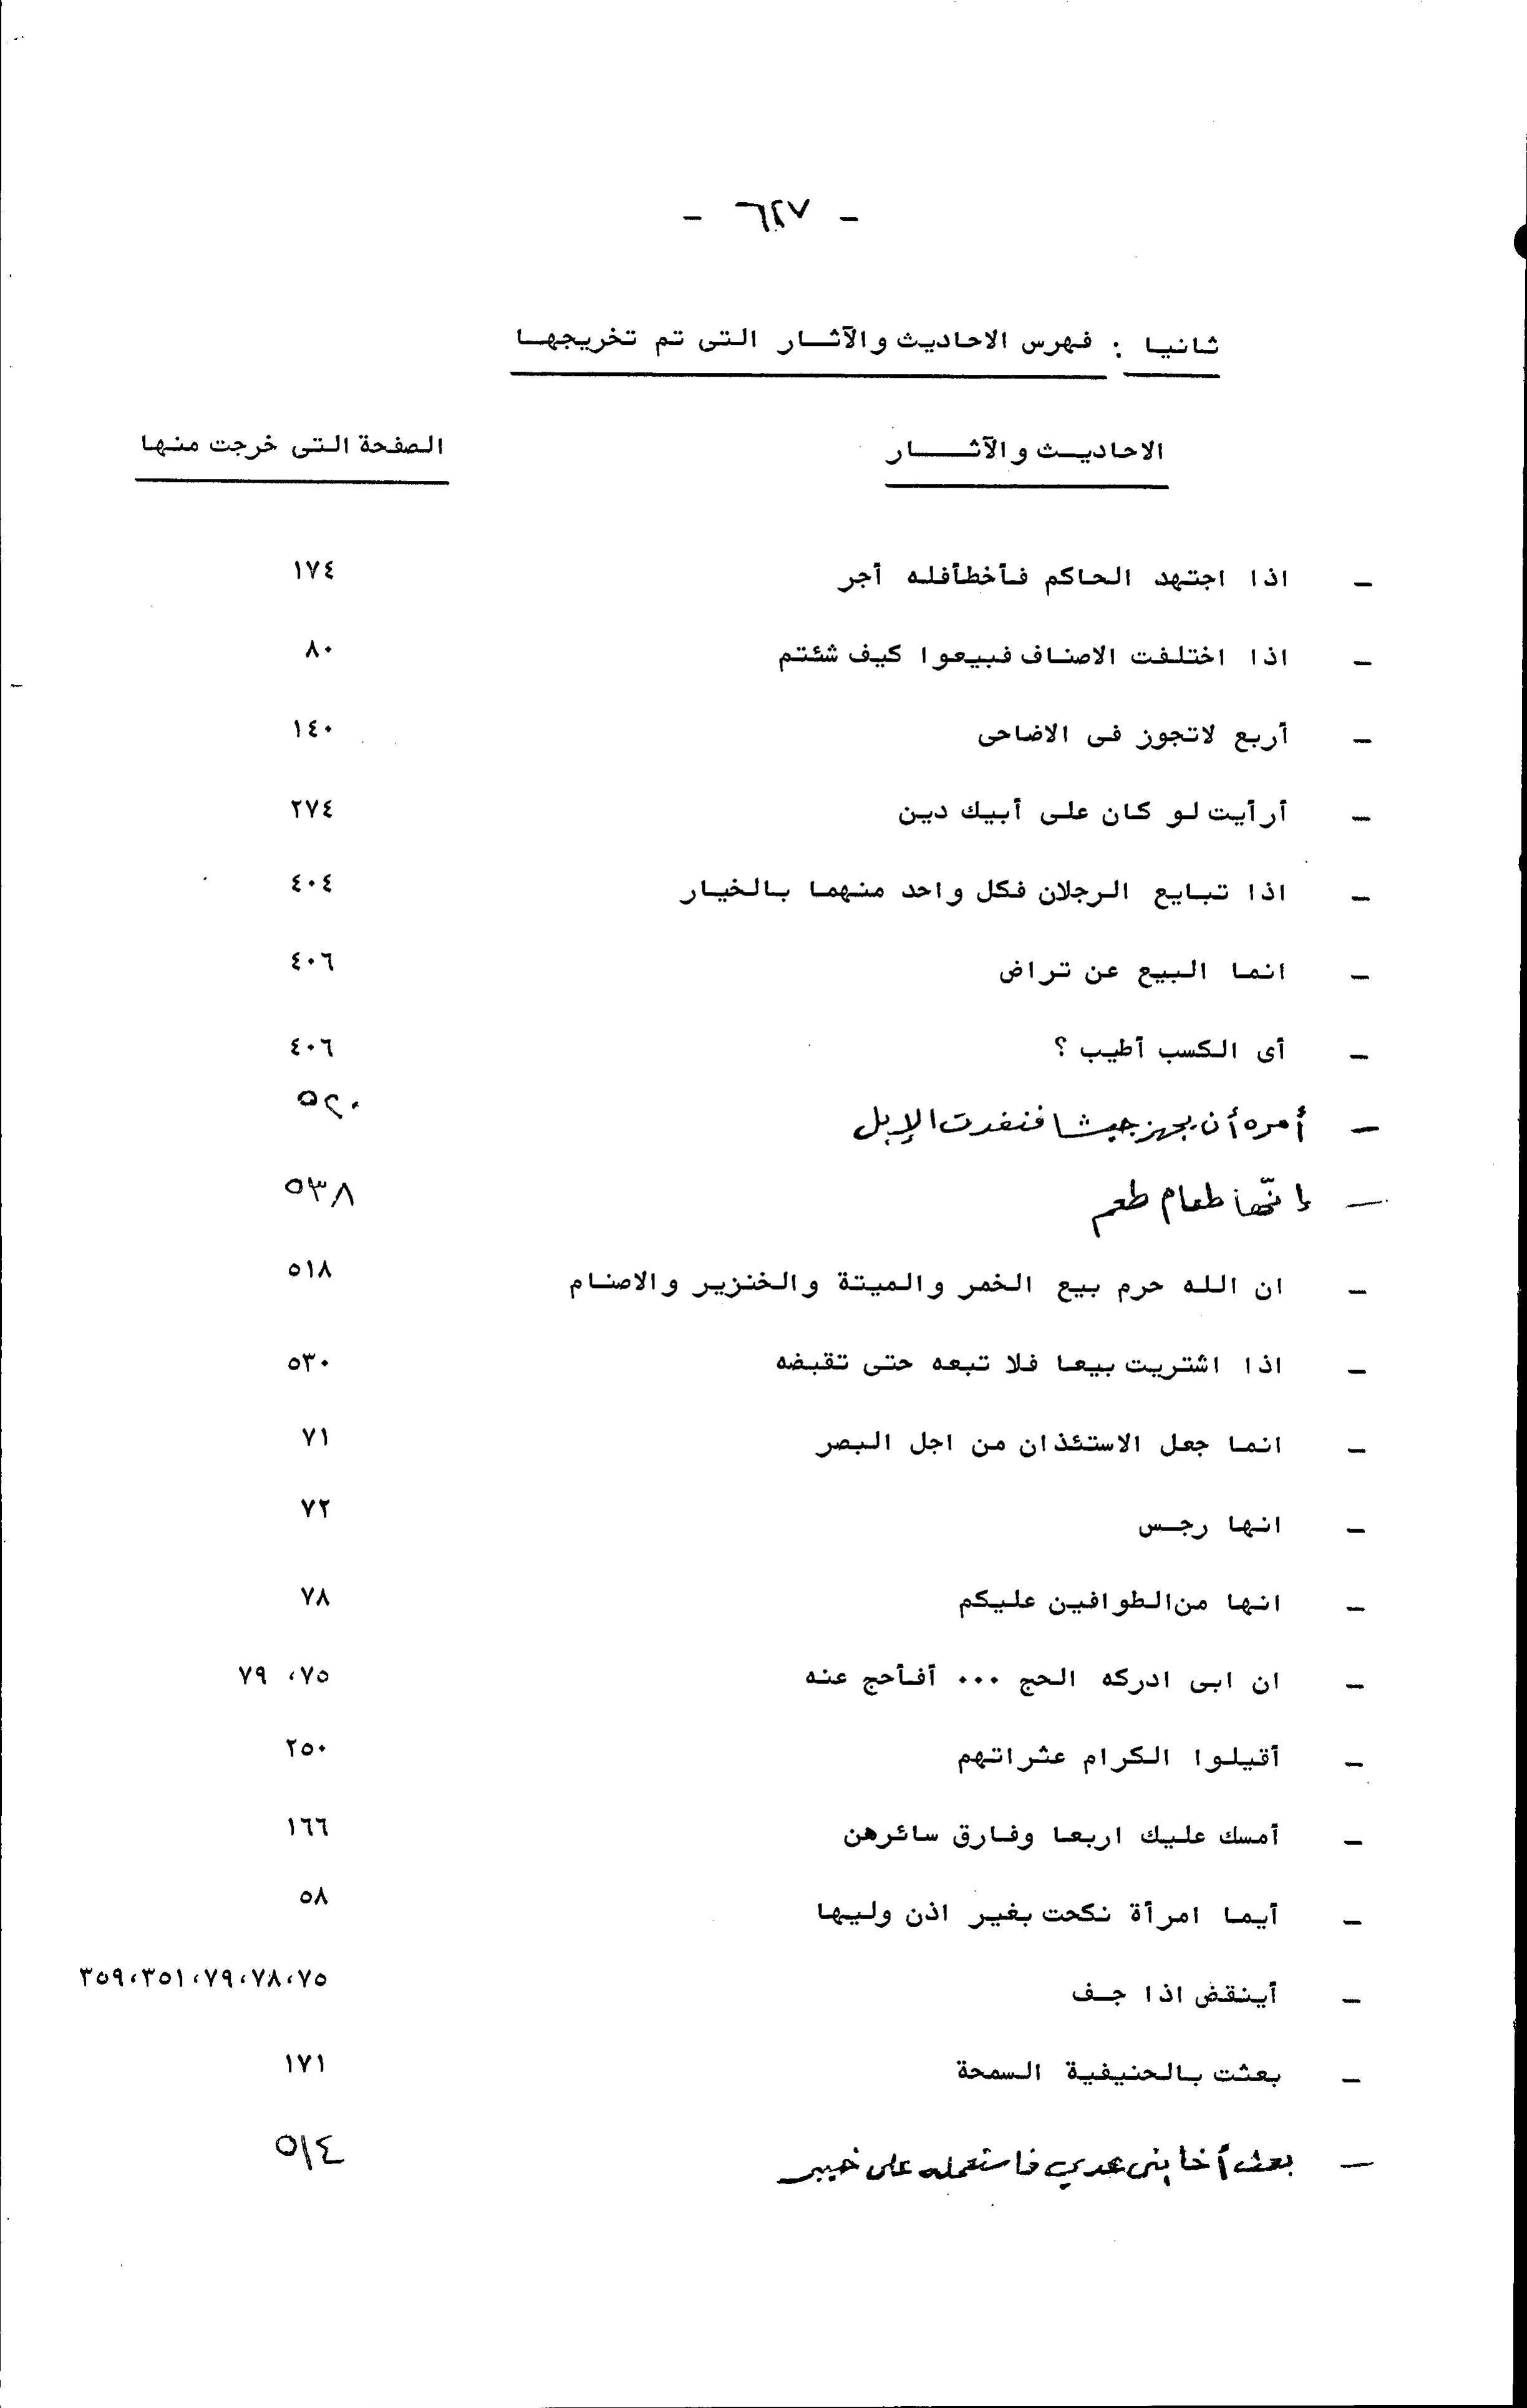 - ٦٢٧ -
ثانيا : فهرس الاحاديث والآثـــار التى تم تخريجهـا
الاحاديـــث والآثـــــار الصفحة التى خرجت منها
- اذا اجتهد الحاكم فأخطأفله أجر ١٧٤
- اذا اختلفت الاصناف فبيعوا كيف شئتم ٨٠
- أربع لاتجوز فى الاضاحى ١٤٠
- أرأيت لو كان على أبيك دين ٢٧٤
- اذا تبايع الرجلان فكل واحد منهما بالخيار ٤٠٤
- انما البيع عن تراض ٤٠٦
- أى الكسب أطيب ؟ ٤٠٦
- أمره أن يجهز جيشا فنفدت الإبل ٥٢٠
- إنّها طعام طعم ٥٣٨
- ان الله حرم بيع الخمر والميتة والخنزير والاصنام ٥١٨
- اذا اشتريت بيعا فلا تبعه حتى تقبضه ٥٣٠
- انما جعل الاستئذان من اجل البصر ٧١
- انها رجـس ٧٢
- انها من الطوافين عليكم ٧٨
- ان ابى ادركه الحج ... أفأحج عنه ٧٥، ٧٩
- أقيلوا الكرام عثراتهم ٢٥٠
- أمسك عليك اربعا وفارق سائرهن ١٦٦
- أيما امرأة نكحت بغير اذن وليها ٥٨
- أينقض اذا جـف ٧٥،٧٨،٧٩،٣٥١،٣٥٩
- بعثت بالحنيفية السمحة ١٧١
- بعث أخا بنى عدي فاستعمله على خيبر ٥١٤